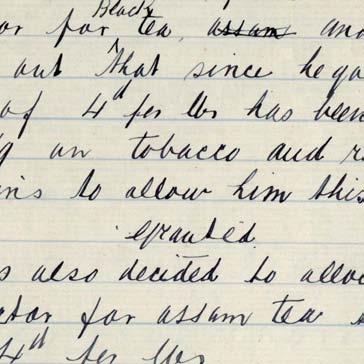 or for Black tea, assam and
out that since he ga
of 4d per lb has been
g on tobacco and r
ins to allow him this
granted.
s also decided to allo
ctor for assam tea
4d per lb